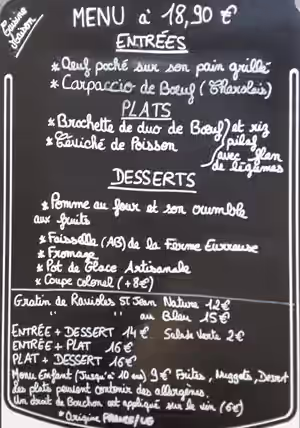 Cuisine
Maison
MENU à 18,90 €
ENTRÉES
* Oeuf poché sur son pain grillé
* Carpaccio de Boeuf (Charolais)
PLATS
* Brochette de duo de Boeuf) et riz
* Céviché de Poisson
pilaf
avec flan
de légumes
DESSERTS
* Pomme au four et son crumble
aux fruits
* Faisselle (AB) de la Ferme Eurreuse
* Fromage
* Pot de Glace Artisanale
* Coupe colonel (+8€)
Gratin de Ravioles St Jean Nature 12€
" " au Bleu 15€
ENTRÉE + DESSERT 14€. Salade Verte 2€
ENTRÉE + PLAT 16€
PLAT + DESSERT 16€
Menu Enfant (Jusqu'à 10 ans) 9€ Frites, Nuggets, Dessert
Les plats peuvent contenir des allergènes.
Un droit de Bouchon est appliqué sur le vin (6€)
* Origine FRANCE/UE